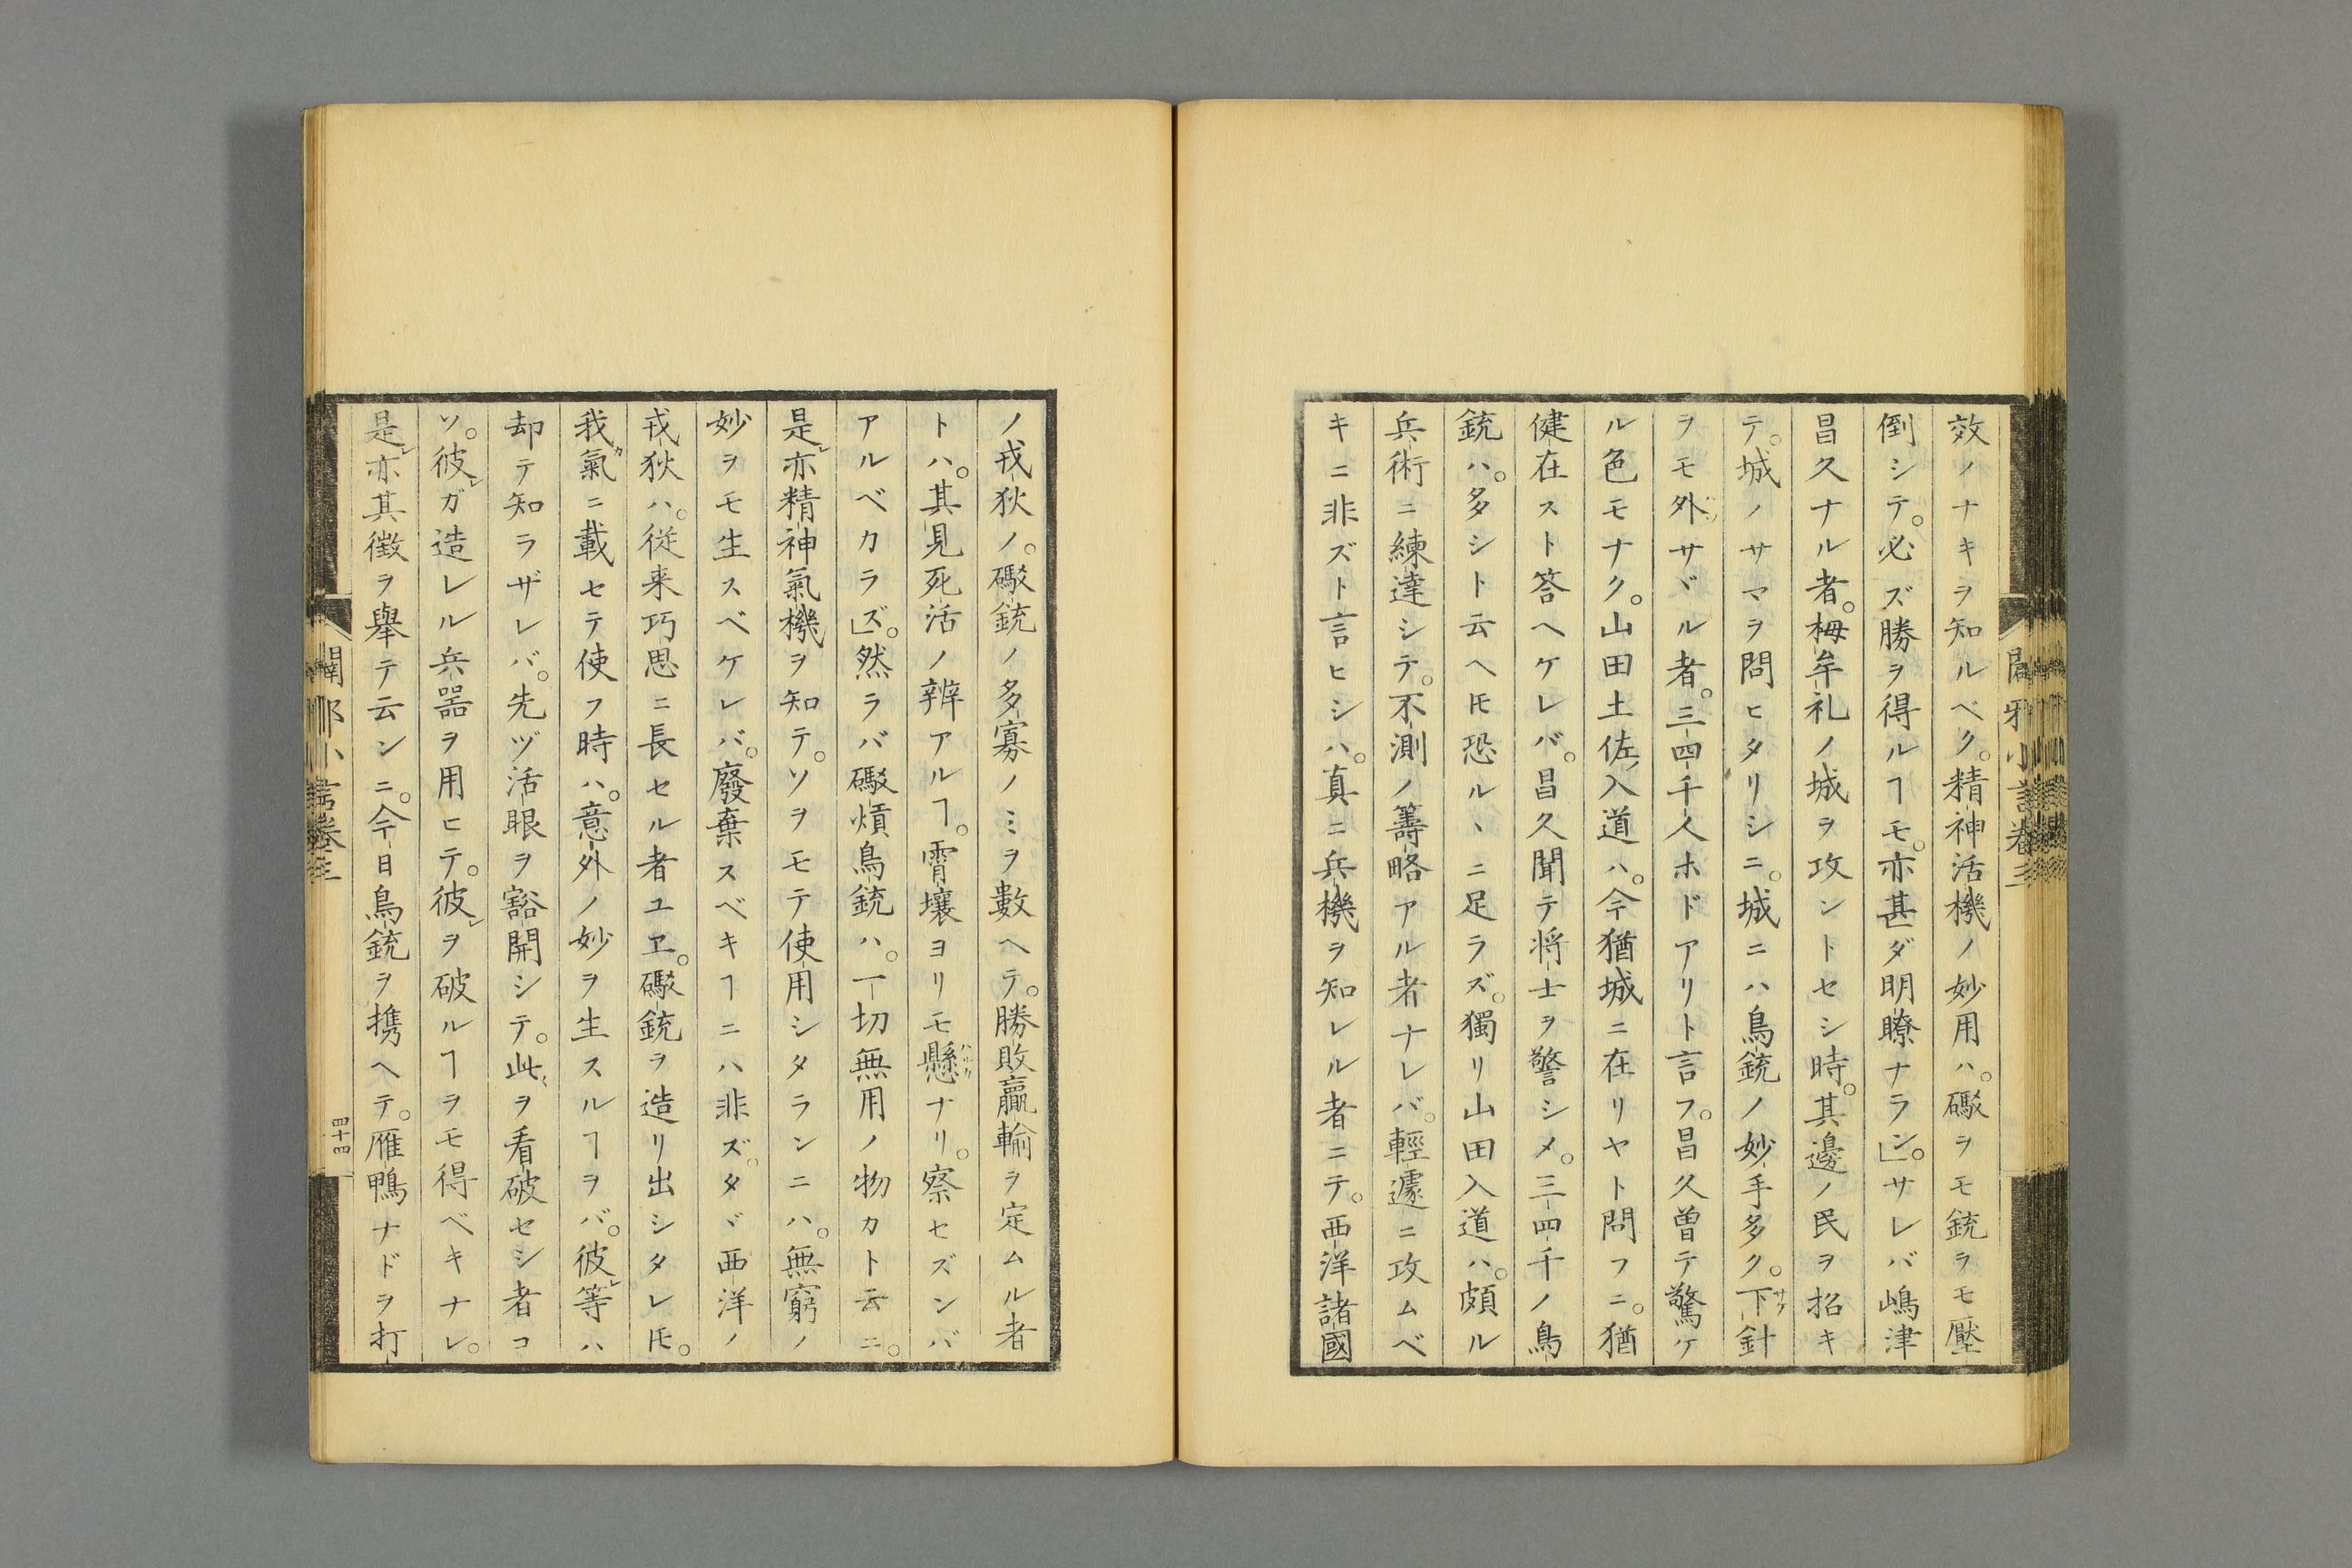 效ノナキヲ知ルベク。精神活機ノ妙用ハ。礮ヲモ銃ヲモ壓
倒シテ。必ズ勝ヲ得ルヿモ。亦甚ダ明瞭ナラン」。サレバ嶋津
昌久ナル者。栂牟礼ノ城ヲ攻ントセシ時。其邊ノ民ヲ招キ
テ。城ノサマヲ問ヒタリシニ。城ニハ鳥銃ノ妙手多ク。下針
ヲモ外サヾル者。三四千人ホドアリト言フ。昌久曽テ驚ケ
ル色モナク。山田土佐入道ハ。今猶城ニ在リヤト問フニ。猶
健在スト答ヘケレバ。昌久聞テ将士ヲ警シメ。三四千ノ鳥
銃ハ。多シト云ヘ𪜈恐ルヽニ足ラズ。獨リ山田入道ハ。頗ル
兵術ニ練達シテ。不測ノ籌略アル者ナレバ。輕遽ニ攻ムベ
キニ非ズト言ヒシハ。真ニ兵機ヲ知レル者ニテ。西洋諸國
ノ戎狄ノ。礮銃ノ多寡ノミヲ數ヘテ。勝敗贏輸ヲ定ムル者
トハ。其見死活ノ辨アルヿ。霄壤ヨリモ懸ナリ。察セズンバ
アルベカラズ」。然ラバ礮熕鳥銃ハ。一切無用ノ物カト云ニ。
是レ亦精神氣機ヲ知テ。ソヲモテ使用シタランニハ。無窮ノ
妙ヲモ生スベケレバ。廢棄スベキヿニハ非ズ。タヾ西洋ノ
戎狄ハ。従来巧思ニ長セル者ユヱ。礮銃ヲ造リ出シタレ𪜈。
我カ氣ニ載セテ使フ時ハ。意外ノ妙ヲ生スルヿヲバ。彼レ等ハ
却テ知ラザレバ。先ヅ活眼ヲ豁開シテ。此ヲ看破セシ者コ
ソ。彼レガ造レル兵噐ヲ用ヒテ。彼レヲ破ルヿヲモ得ベキナレ。
是レ亦其徴ヲ舉テ云ンニ。今日鳥銃ヲ携ヘテ。雁鴨ナドヲ打